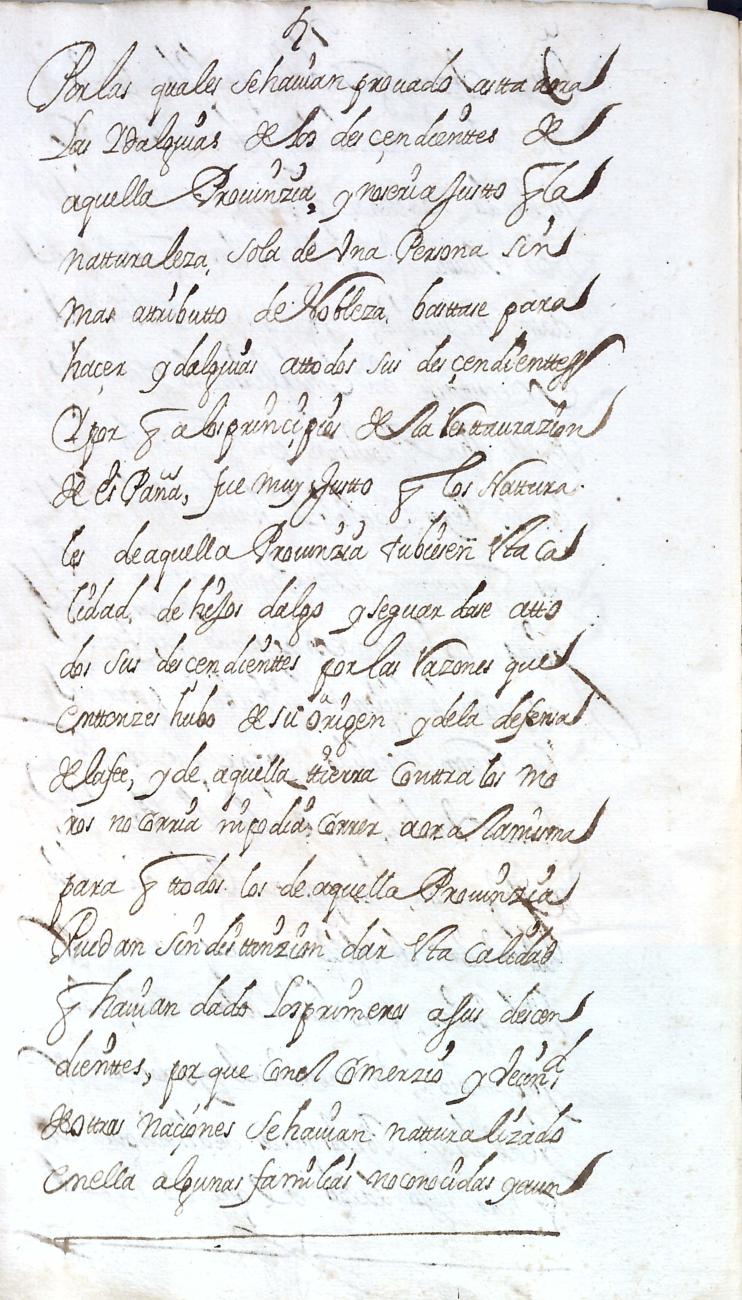 Por las quales se hauian prouado astta aora
Las Ydalguias de los desçendienttes de
aquella Prouinzia, y no seria Justto q̃ la
natturaleza, sola de Vna Persona sin
mas attributto de Nobleza, basttase para
haçer ydalguias attodos sus desçendienttes
Y por q̃ a los prinçipios de la Resttaurazion
de España, fue muy Justto q̃ los Nattura
les de aquella Prouinzia tubiesen Esta ca
lidad, de hijos dalgo y se guardase atto
dos sus descendienttes por las Razones que
enttonzes hubo de su origen y de la defensa
de la fee, y de aquella ttierra Conttra los mo
ros no corria ni podia correr aora la misma
para q̃ ttodos los de aquella Prouinzia
Puedan sin disttinzion dar Esta Calidad
q̃ hauian dado Los primeros a sus descen
dienttes, por que con el Comerzio y Vecind.
de ottras naçiones se hauian natturalizado
en ella algunas familias no conocidas y aun